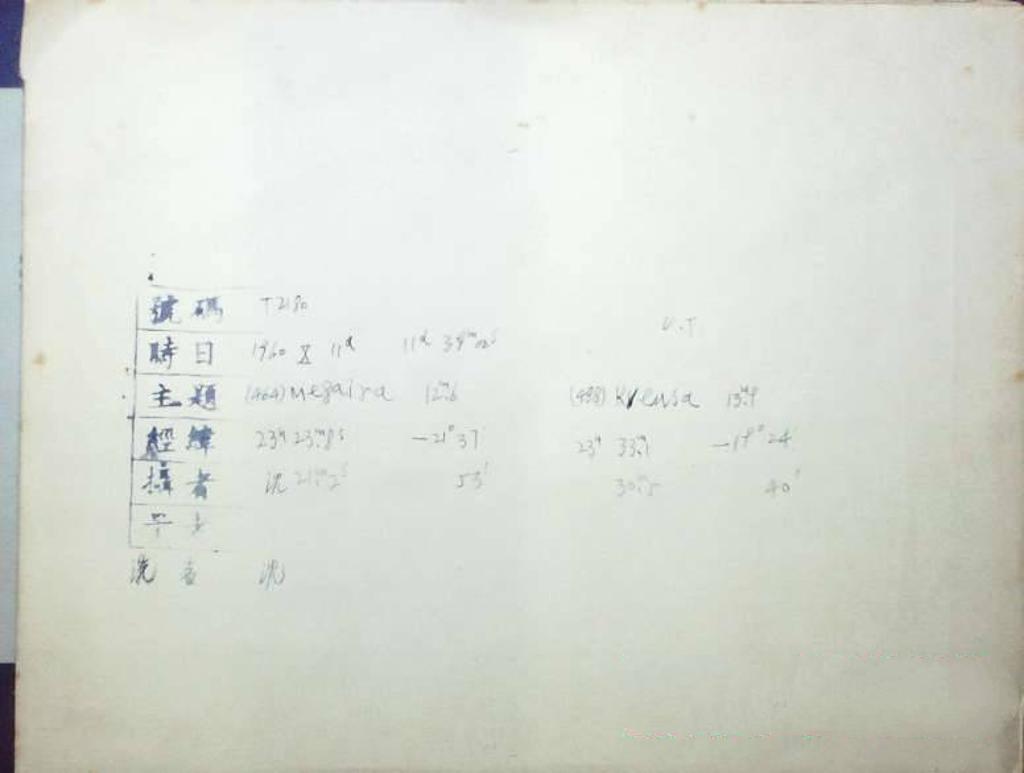 號碼 T2180
U.T.
時日 1960 X 11ᵈ 11ᵈ 39ᵐ02ˢ
主題 (464) Megaira 12ᵐ.6 (488) Kreusa 13ᵐ.9
經緯 23ʰ 23ᵐ.8 -21° 37' 23ʰ 33ᵐ.1 -19° 24'
攝者 沈 21ᵐ.2 53' 30ᵐ.5 40'
洗者 沈